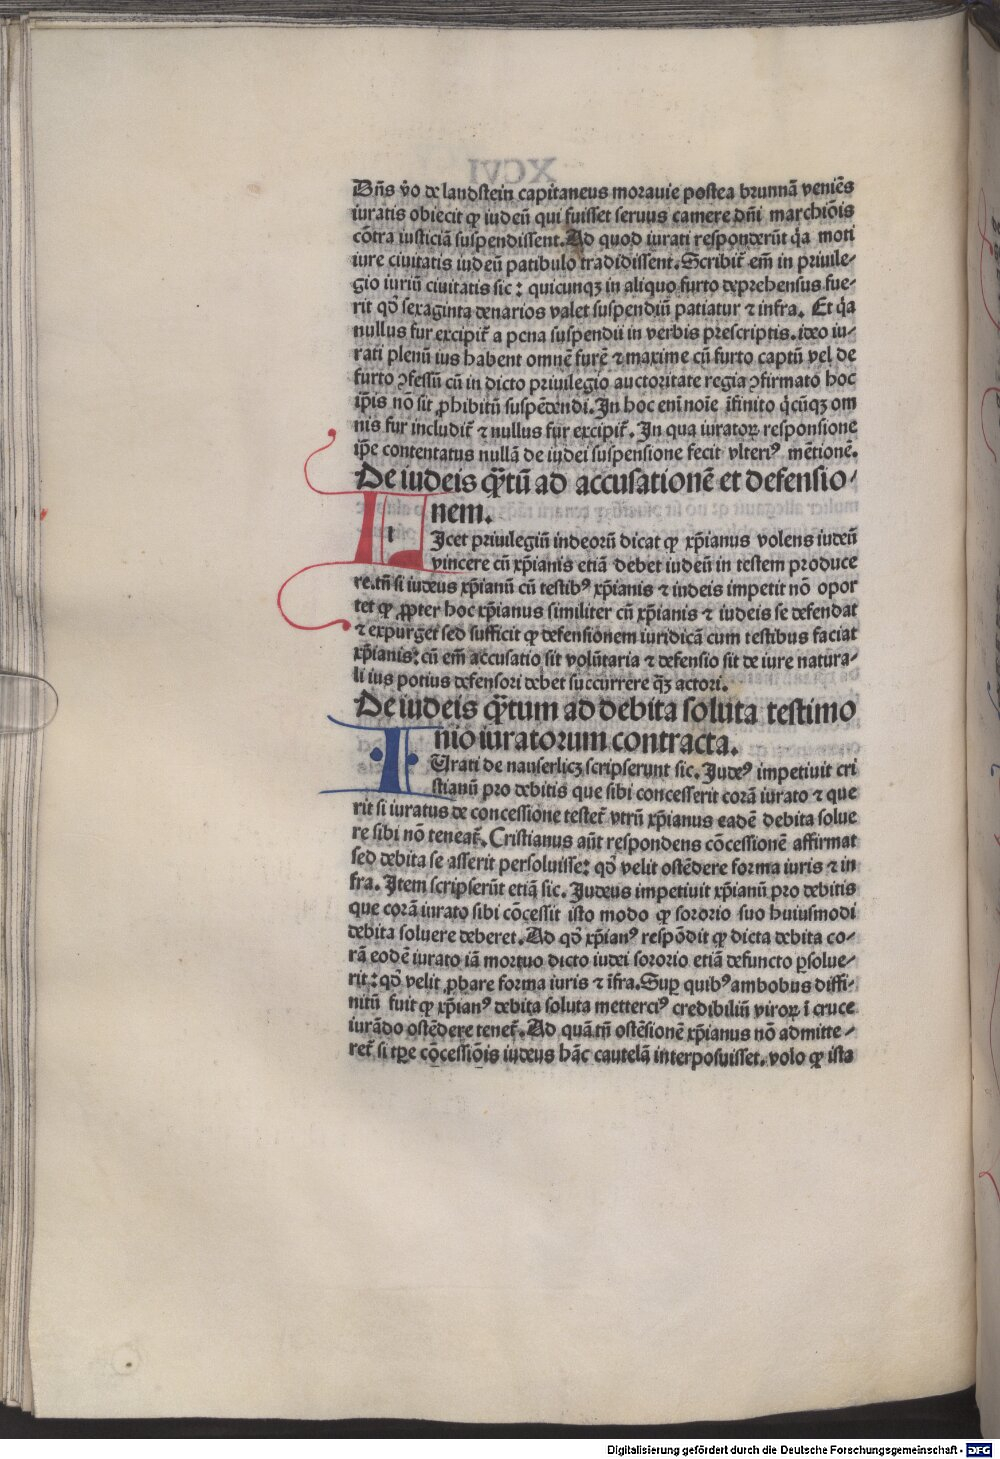 Dñs ỽo de landstein capitaneus morauie postea brunnã veniẽs
iuratis obiecit ꝙ iudeũ qui fuisset seruus camere dñi marchiõis
cõtra iusticiã suspendissent. Ad quod iurati responderũt q̃a moti
iure ciuitatis iudeũ patibulo tradidissent. Scribit᷑ em̃ in priuile⸗
gio iuriũ ciuitatis sic: quicunqꝫ in aliquo furto deprehensus fue⸗
rit qđ sexaginta denarios valet suspendiũ patiatur ⁊ infra. Et q̃a
nullus fur excipit᷑ a pena suspendii in verbis prescriptis. ideo iu⸗
rati plenũ ius habent omnẽ furẽ ⁊ maxime cũ furto captũ vel de
furto ↄfessũ cũ in dicto priuilegio auctoritate regia ↄfirmato hoc
ip̃is nõ sit ꝓhibitũ suspẽdendi. In hoc eni noĩe ĩfinito q̃cũqꝫ om
nis fur includit᷑ ⁊ nullus fur excipit᷑. In qua iuratoꝝ responsione
ip̃e contentatus nullã de iudei suspensione fecit vlteriꝰ mẽtionẽ.
De iudeis q̃ꝫtũ ad accusationẽ et defensio⸗
nem.
l
Icet priuilegiũ indeorũ dicat ꝙ xp̃ianus volens iudeũ
vincere cũ xp̃ianis etiã debet iudeũ in testem produce
re. tñ si iudeus xp̃ianũ cũ testibꝰ xp̃ianis ⁊ iudeis impetit nõ opor
tet ꝙ ꝓpter hoc xp̃ianus similiter cũ xp̃ianis ⁊ iudeis se defendat
⁊ expurget sed sufficit ꝙ defensionem iuridicã cum testibus faciat
xp̃ianis: cũ em̃ accusatio sit volũtaria ⁊ defensio sit de iure natura⸗
li ius potius defensori debet succurrere q̃ꝫ actori.
De iudeis q̃ꝫtum ad debita soluta testimo
nio iuratorum contracta.
I
Urati de nauserlicz scripserunt sic. Iudeꝰ impetiuit cri
stianũ pro debitis que sibi concesserit corã iurato ⁊ que
rit si iuratus de concessione testet᷑ vtrũ xp̃ianus eadẽ debita solue
re sibi nõ teneat᷑. Cristianus aũt respondens cõcessionẽ affirmat
sed debita se asserit persoluisse: qđ velit ostẽdere forma iuris ⁊ in
fra. Item scripserũt etiã sic. Iudeus impetiuit xp̃ianũ pro debitis
que corã iurato sibi cõcessit isto modo ꝙ sororio suo huiusmodi
debita soluere deberet. Ad qđ xp̃ianꝰ respõdit ꝙ dicta debita co⸗
rã eodẽ iurato iã mortuo dicto iudei sororio etiã defuncto ꝑsolue⸗
rit: qđ velit ꝓbare forma iuris ⁊ ĩfra. Suꝑ quibꝰ ambobus diffi⸗
nitũ fuit ꝙ xp̃ianꝰ debita soluta mettercíꝰ credibiliũ viroꝝ ĩ cruce
iurãdo ostẽdere tenet᷑. Ad quã tñ ostẽsionẽ xp̃ianus nõ admitte⸗
ret᷑ si tꝑe cõcessiõis iudeus hãc cautelã interposuisset. volo ꝙ ista
Digitalisierung gefördert durch die Deutsche Forschungsgemeinschaft - DFG